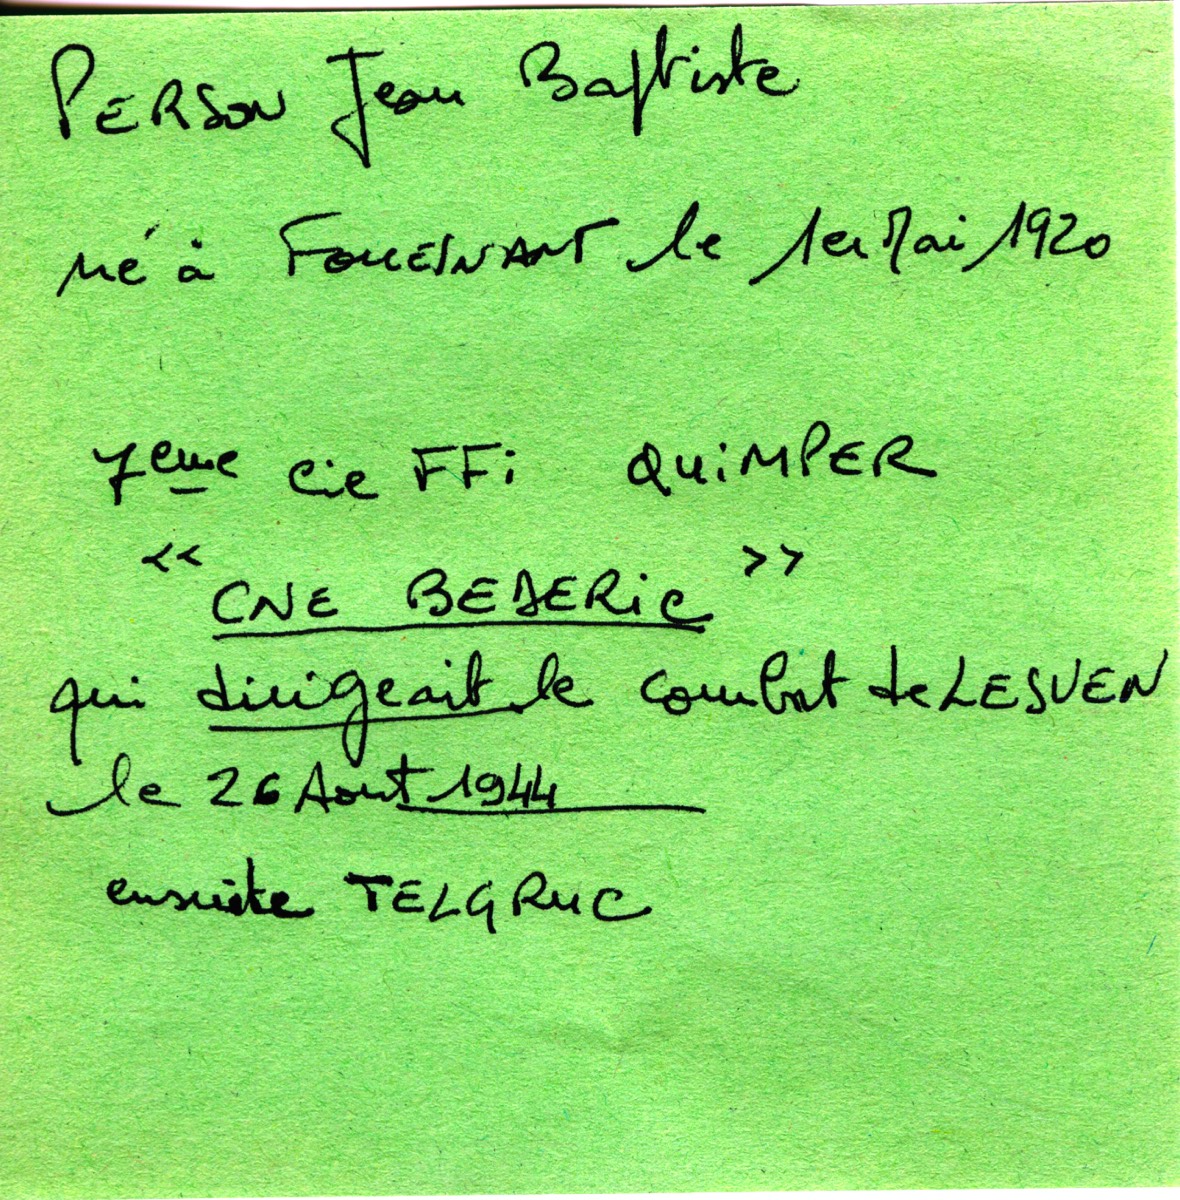 PERSON Jean Baptiste
né à FOUESNANT le 1er Mai 1920
7eme Cie FFi QUiMPER
<< CNE BEDERiC >>
qui dirigeait le combat de LESVEN
le 26 Aout 1944
ensuite TELGRUC